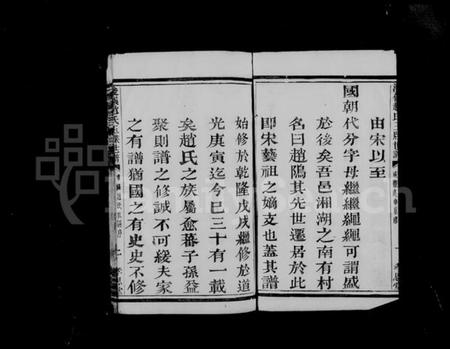 由宋以至
國朝代分字母繼繼繩繩可謂盛
於後矣吾邑湘湖之南有村
名曰趙隝其先世遷居於此
即宋藝祖之嫡支也蓋其譜
始修於乾隆戊戌繼修於道
光庚寅迄今巳三十有一載
矣趙氏之族屬愈蕃子孫益
聚則譜之修誠不可緩夫家
之有譜猶國之有史史不修